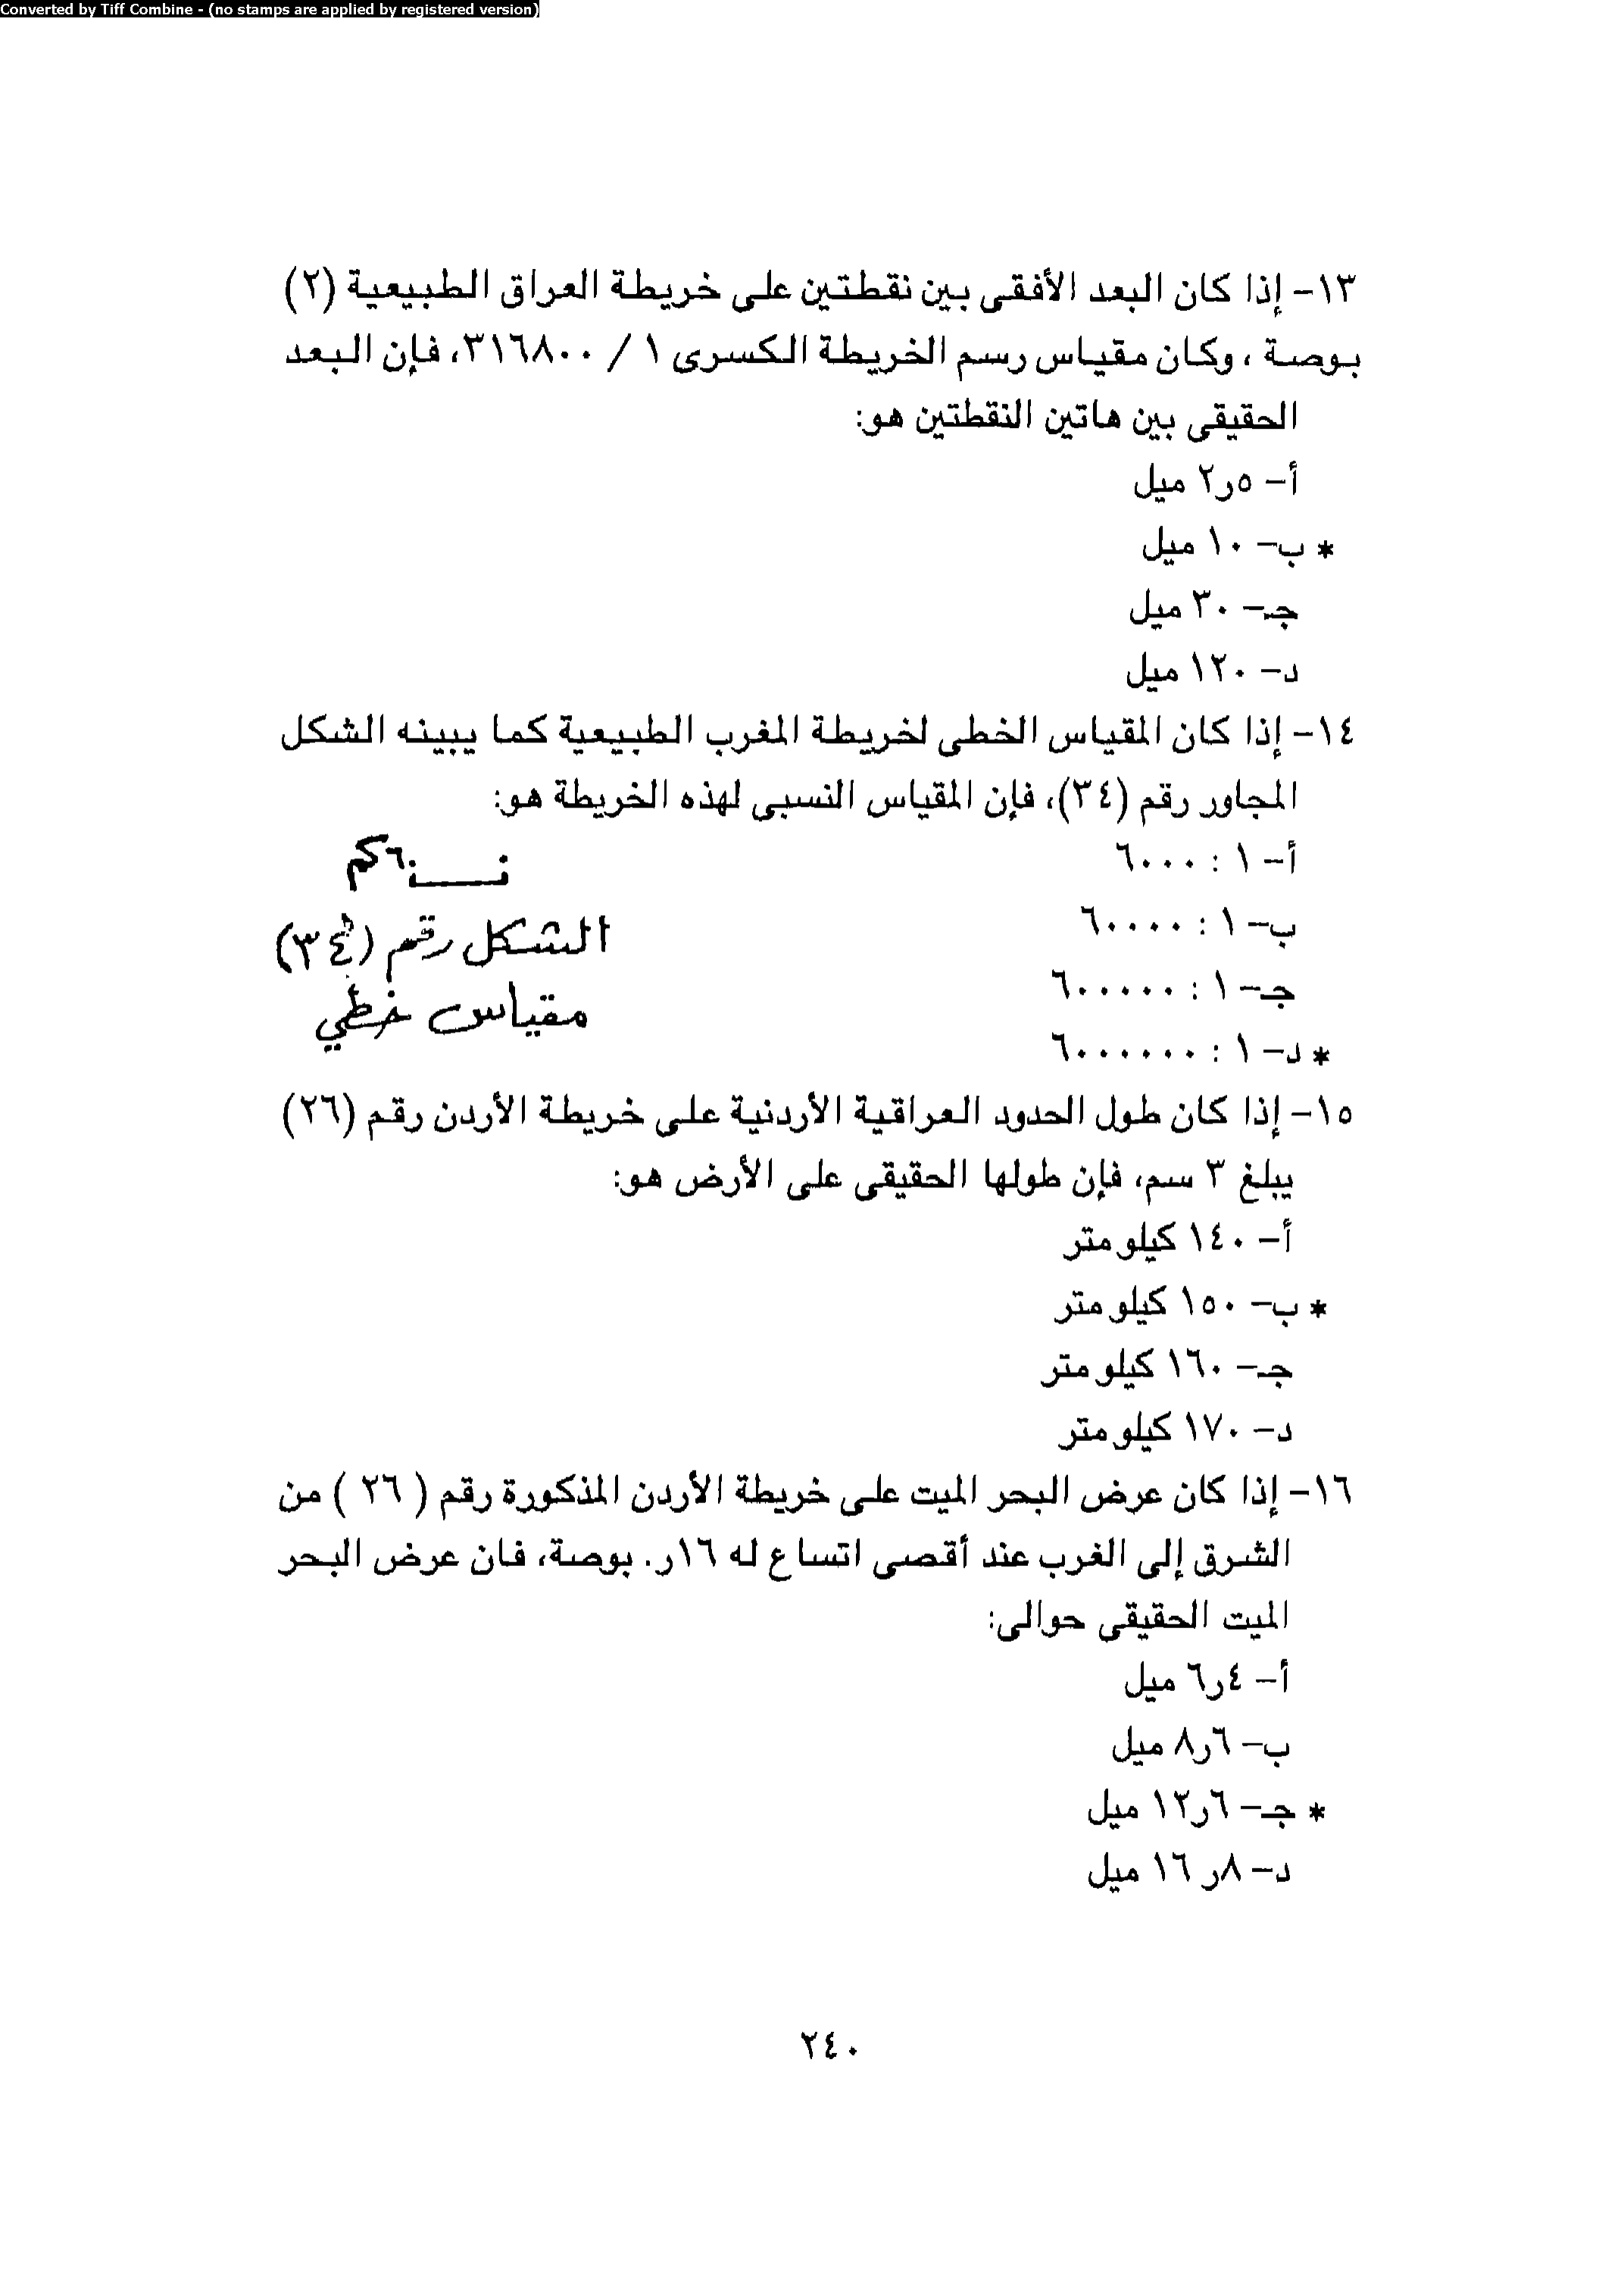 Converted by Tiff Combine - (no stamps are applied by registered version)
١٣- إذا كان البعد الأفقى بين نقطتين على خريطة العراق الطبيعية (٢)
بوصة ، وكان مقياس رسم الخريطة الكسرى ١ / ٣١٦٨٠٠، فإن البعد
الحقيقى بين هاتين النقطتين هو:
أ- ٥ر٢ ميل
* ب- ١٠ ميل
جـ- ٣٠ ميل
د- ١٢٠ ميل
١٤- إذا كان المقياس الخطى لخريطة المغرب الطبيعية كما يبينه الشكل
المجاور رقم (٣٤)، فإن المقياس النسبى لهذه الخريطة هو:
أ- ١ : ٦٠٠٠
ب- ١ : ٦٠٠٠٠
جـ- ١ : ٦٠٠٠٠٠
* د- ١ : ٦٠٠٠٠٠٠
٠ ٦٠كم
الشكل رقم (٣٤)
مقياس خطي
١٥- إذا كان طول الحدود العراقية الأردنية على خريطة الأردن رقم (٢٦)
يبلغ ٣ سم، فإن طولها الحقيقى على الأرض هو:
أ- ١٤٠ كيلو متر
* ب- ١٥٠ كيلو متر
جـ- ١٦٠ كيلو متر
د- ١٧٠ كيلو متر
١٦- إذا كان عرض البحر الميت على خريطة الأردن المذكورة رقم ( ٢٦ ) من
الشرق إلى الغرب عند أقصى اتساع له ١٦ر. بوصة، فان عرض البحر
الميت الحقيقى حوالى:
أ- ٤ر٦ ميل
ب- ٦ر٨ ميل
* جـ- ٦ر١٢ ميل
د- ٨ر ١٦ ميل
٢٤٠